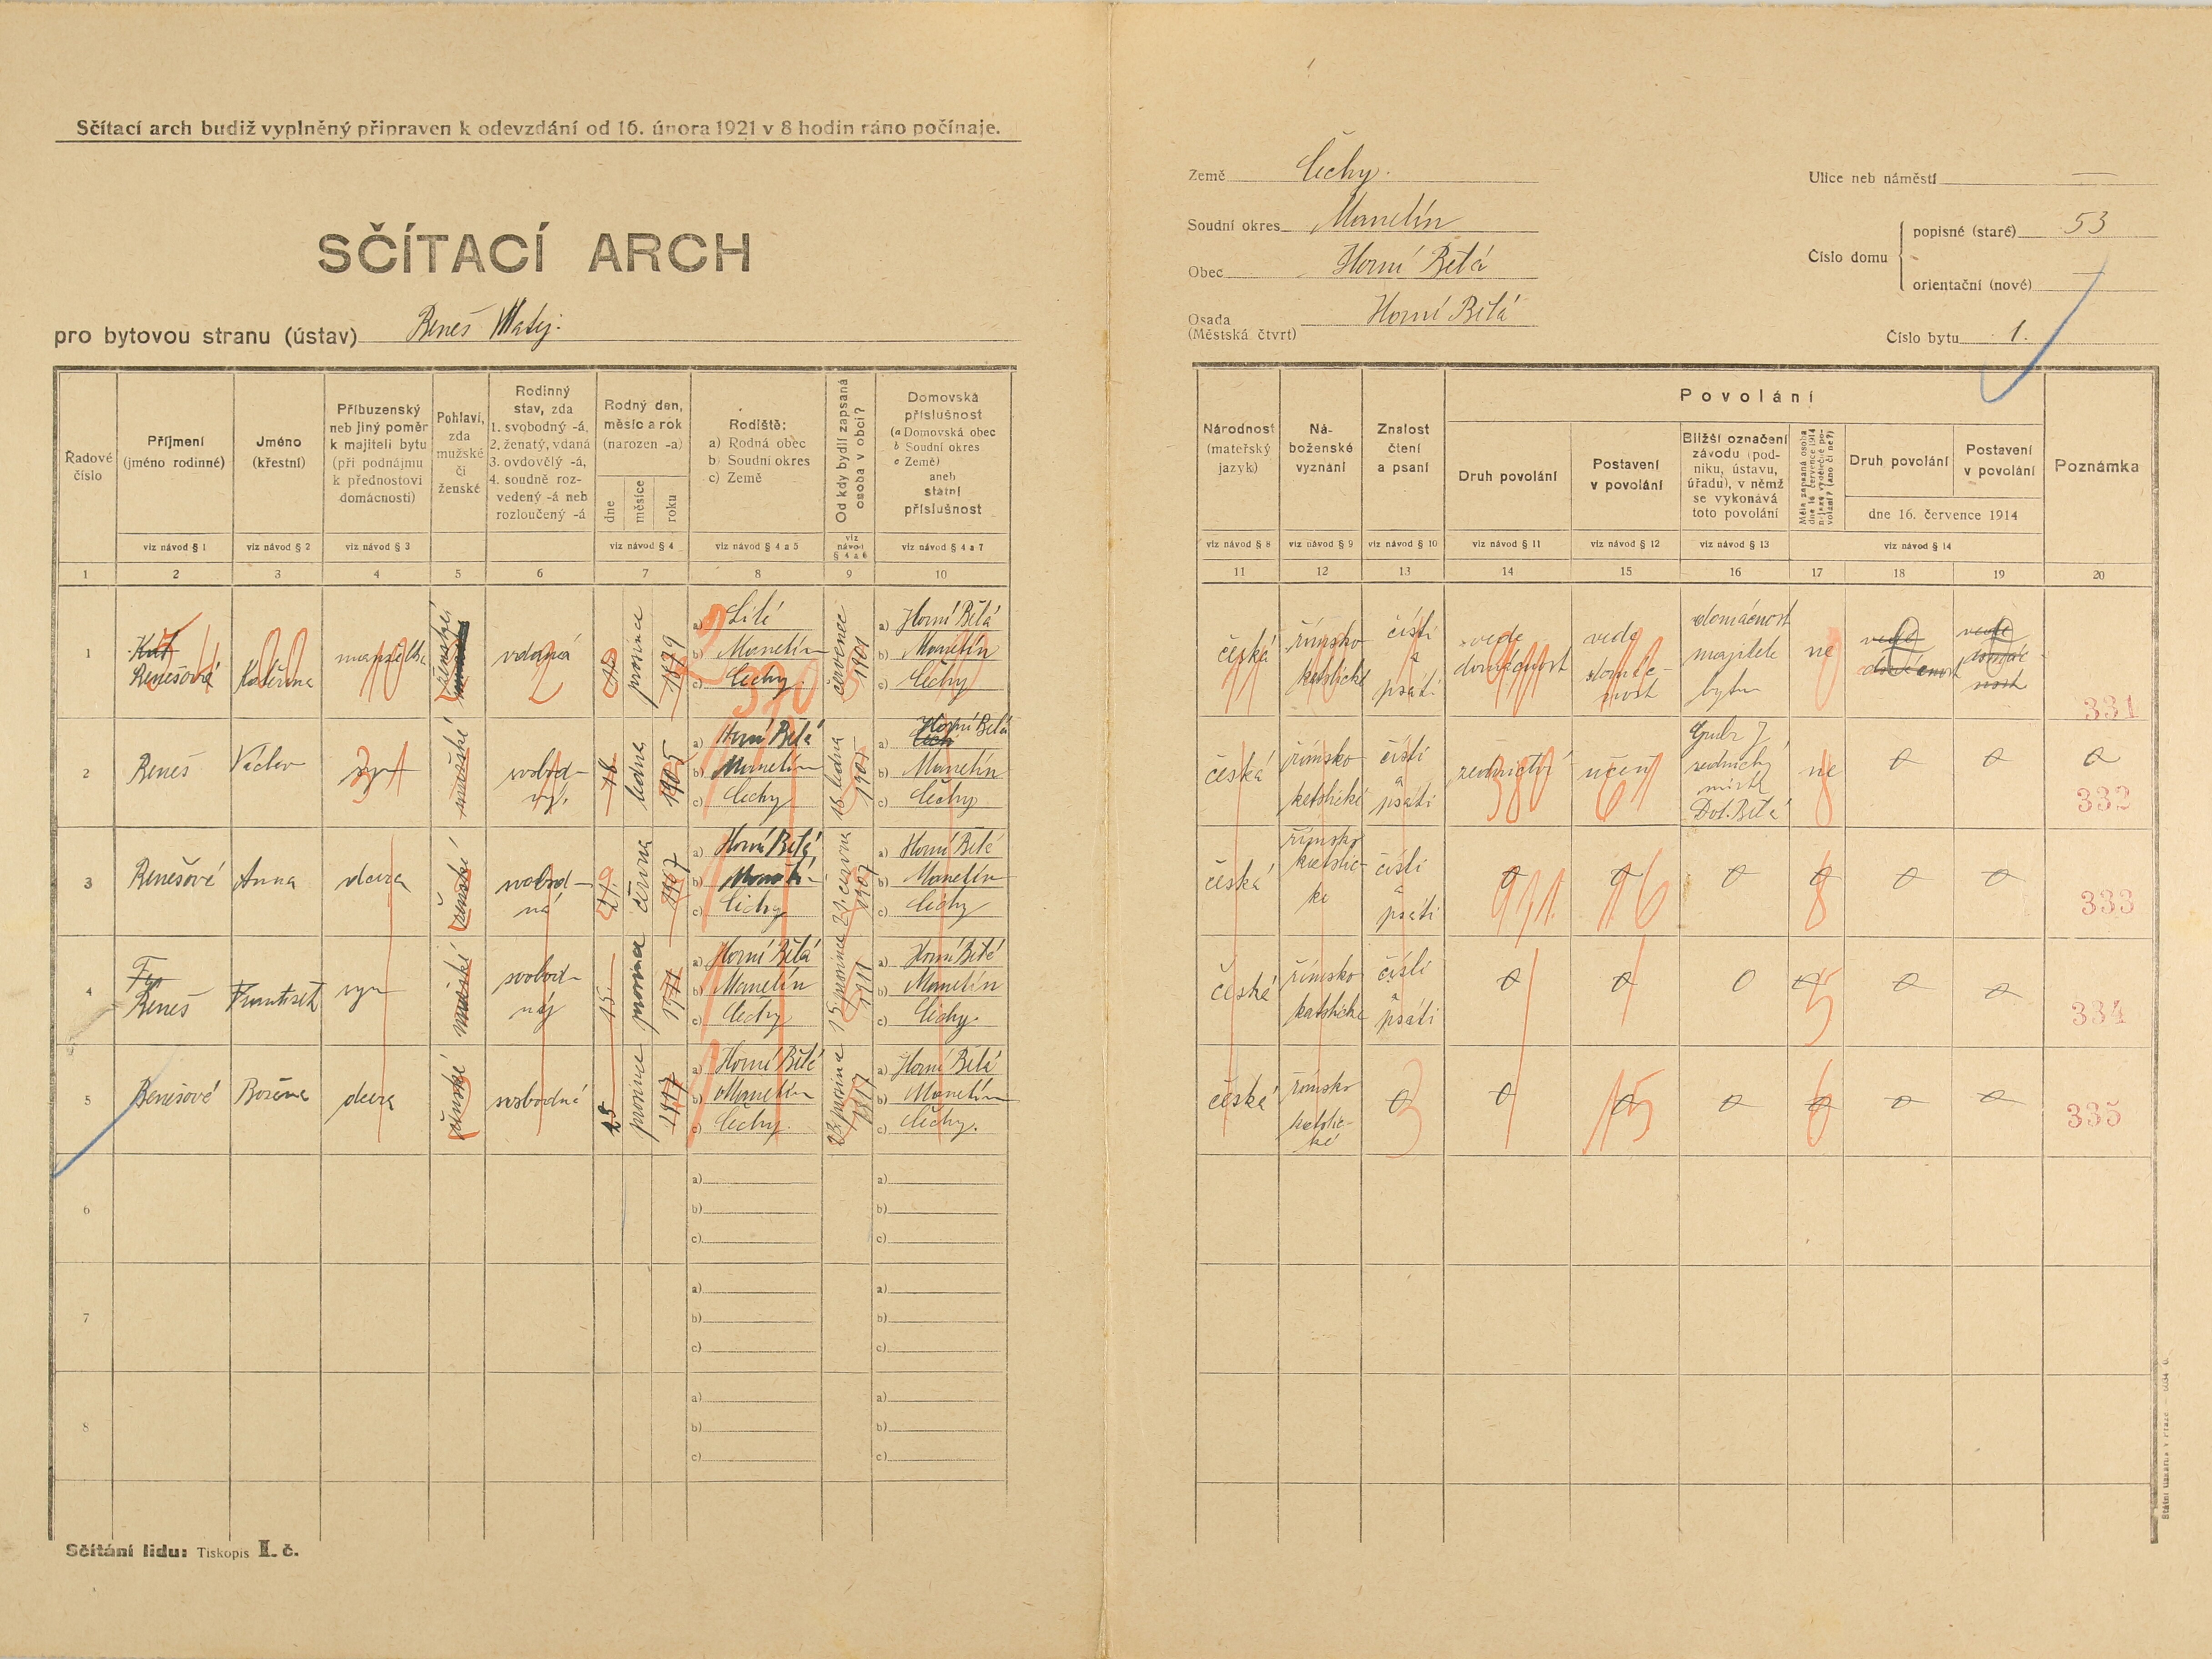 Sčítací arch budiž vyplněný připraven k odevzdání od 16. února 1921 v 8 hodin ráno počínaje.
SČÍTACÍ ARCH
pro bytovou stranu (ústav) Beneš Matěj.
Země Čechy.
Soudní okres Manetín
Obec Horní Bělá
Osada Horní Bělá
(Městská čtvrt)
Ulice neb náměstí —
Číslo domu
popisné (staré) 53
orientační (nové) —
Číslo bytu 1.
Řadové číslo
Příjmení (jméno rodinné)
Jméno (křestní)
Příbuzenský neb jiný poměr k majiteli bytu (při podnájmu k přednostovi domácnosti)
Pohlaví, zda mužské či ženské
Rodinný stav, zda 1. svobodný -á, 2. ženatý, vdaná 3. ovdovělý -á, 4. soudně rozvedený -á neb rozloučený -á
Rodný den, měsíc a rok (narozen -a)
dne měsíce roku
Rodiště: a) Rodná obec b) Soudní okres c) Země
Od kdy bydlí zapsaná osoba v obci?
Domovská příslušnost (a Domovská obec b Soudní okres c Země) aneb státní příslušnost
viz návod § 1 viz návod § 2 viz návod § 3 viz návod § 4 viz návod § 4 a 5 viz návod § 4 a 6 viz návod § 4 a 7
1 2 3 4 5 6 7 8 9 10
Národnost (mateřský jazyk)
Náboženské vyznání
Znalost čtení a psaní
Povolání
Druh povolání
Postavení v povolání
Bližší označení závodu (podniku, ústavu, úřadu), v němž se vykonává toto povolání
Měla zapsaná osoba dne 16. července 1914 nějaké výdělečné povolání? (ano či ne?)
Druh povolání
Postavení v povolání
dne 16. července 1914
Poznámka
viz návod § 8 viz návod § 9 viz návod § 10 viz návod § 11 viz návod § 12 viz návod § 13 viz návod § 14
11 12 13 14 15 16 17 18 19 20
1 Benešová Kateřina manželka ženské vdaná prosince 1879
a) Líté
b) Manetín
c) Čechy
červenec 1901
a) Horní Bělá
b) Manetín
c) Čechy
česká římsko katolické čísti a psáti vede domácnost vede domácnost domácnost majitele bytu ne vede domácnost vede domácnost 331
2 Beneš Václav syn mužské svobodný. 18 ledna 1905
a) Horní Bělá
b) Manetín
c) Čechy
18 ledna 1905
a) Horní Bělá
b) Manetín
c) Čechy
česká římsko katolické čísti a psáti zednictví učeň zednický Dol. Bělá ne 0 0 0 332
3 Benešové Anna dcera ženské svobodná 29 června 1907
a) Horní Bělá
b) Manetín
c) Čechy
29. června 1907
a) Horní Bělé
b) Manetín
c) Čechy
česká římsko katolické čísti a psáti 0 0 0 0 0 0 333
4 Beneš František syn mužské svobodný 15 prosince 1911
a) Horní Bělá
b) Manetín
c) Čechy
15 prosince 1911
a) Horní Bělé
b) Manetín
c) Čechy.
česká římsko katolické čísti a psáti 0 0 0 0 0 0 334
5 Benešové Božena dcera ženské svobodná 23 prosince 1917
a) Horní Bělé
b) Manetín
c) Čechy.
23 prosince 1917
a) Horní Bělá
b) Manetín
c) Čechy.
česká římsko katolické 0 0 0 0 0 0 0 335
6 a) a)
b) b)
c) c)
7 a) a)
b) b)
c) c)
8 a) a)
b) b)
c) c)
Sčítání lidu: Tiskopis I. č.